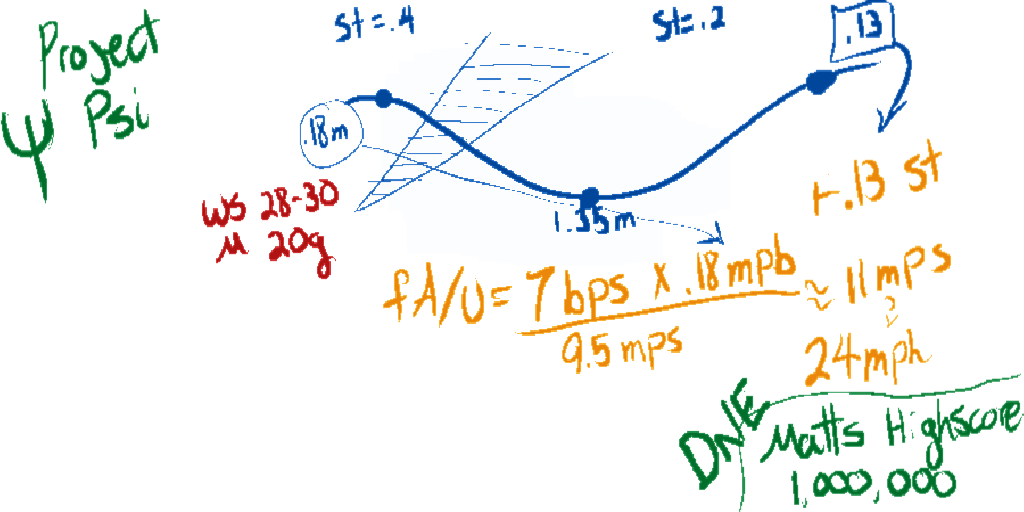 Project
Ψ Psi
st=.4
st=.2
.13
.18m
WS 28-30
M 20g
1.35m
r.13 st
fA/U = 7 bps x .18 mpb
9.5 mps
≈ 11 mps
24 mph
DNE
Matts Highscore
1,000,000